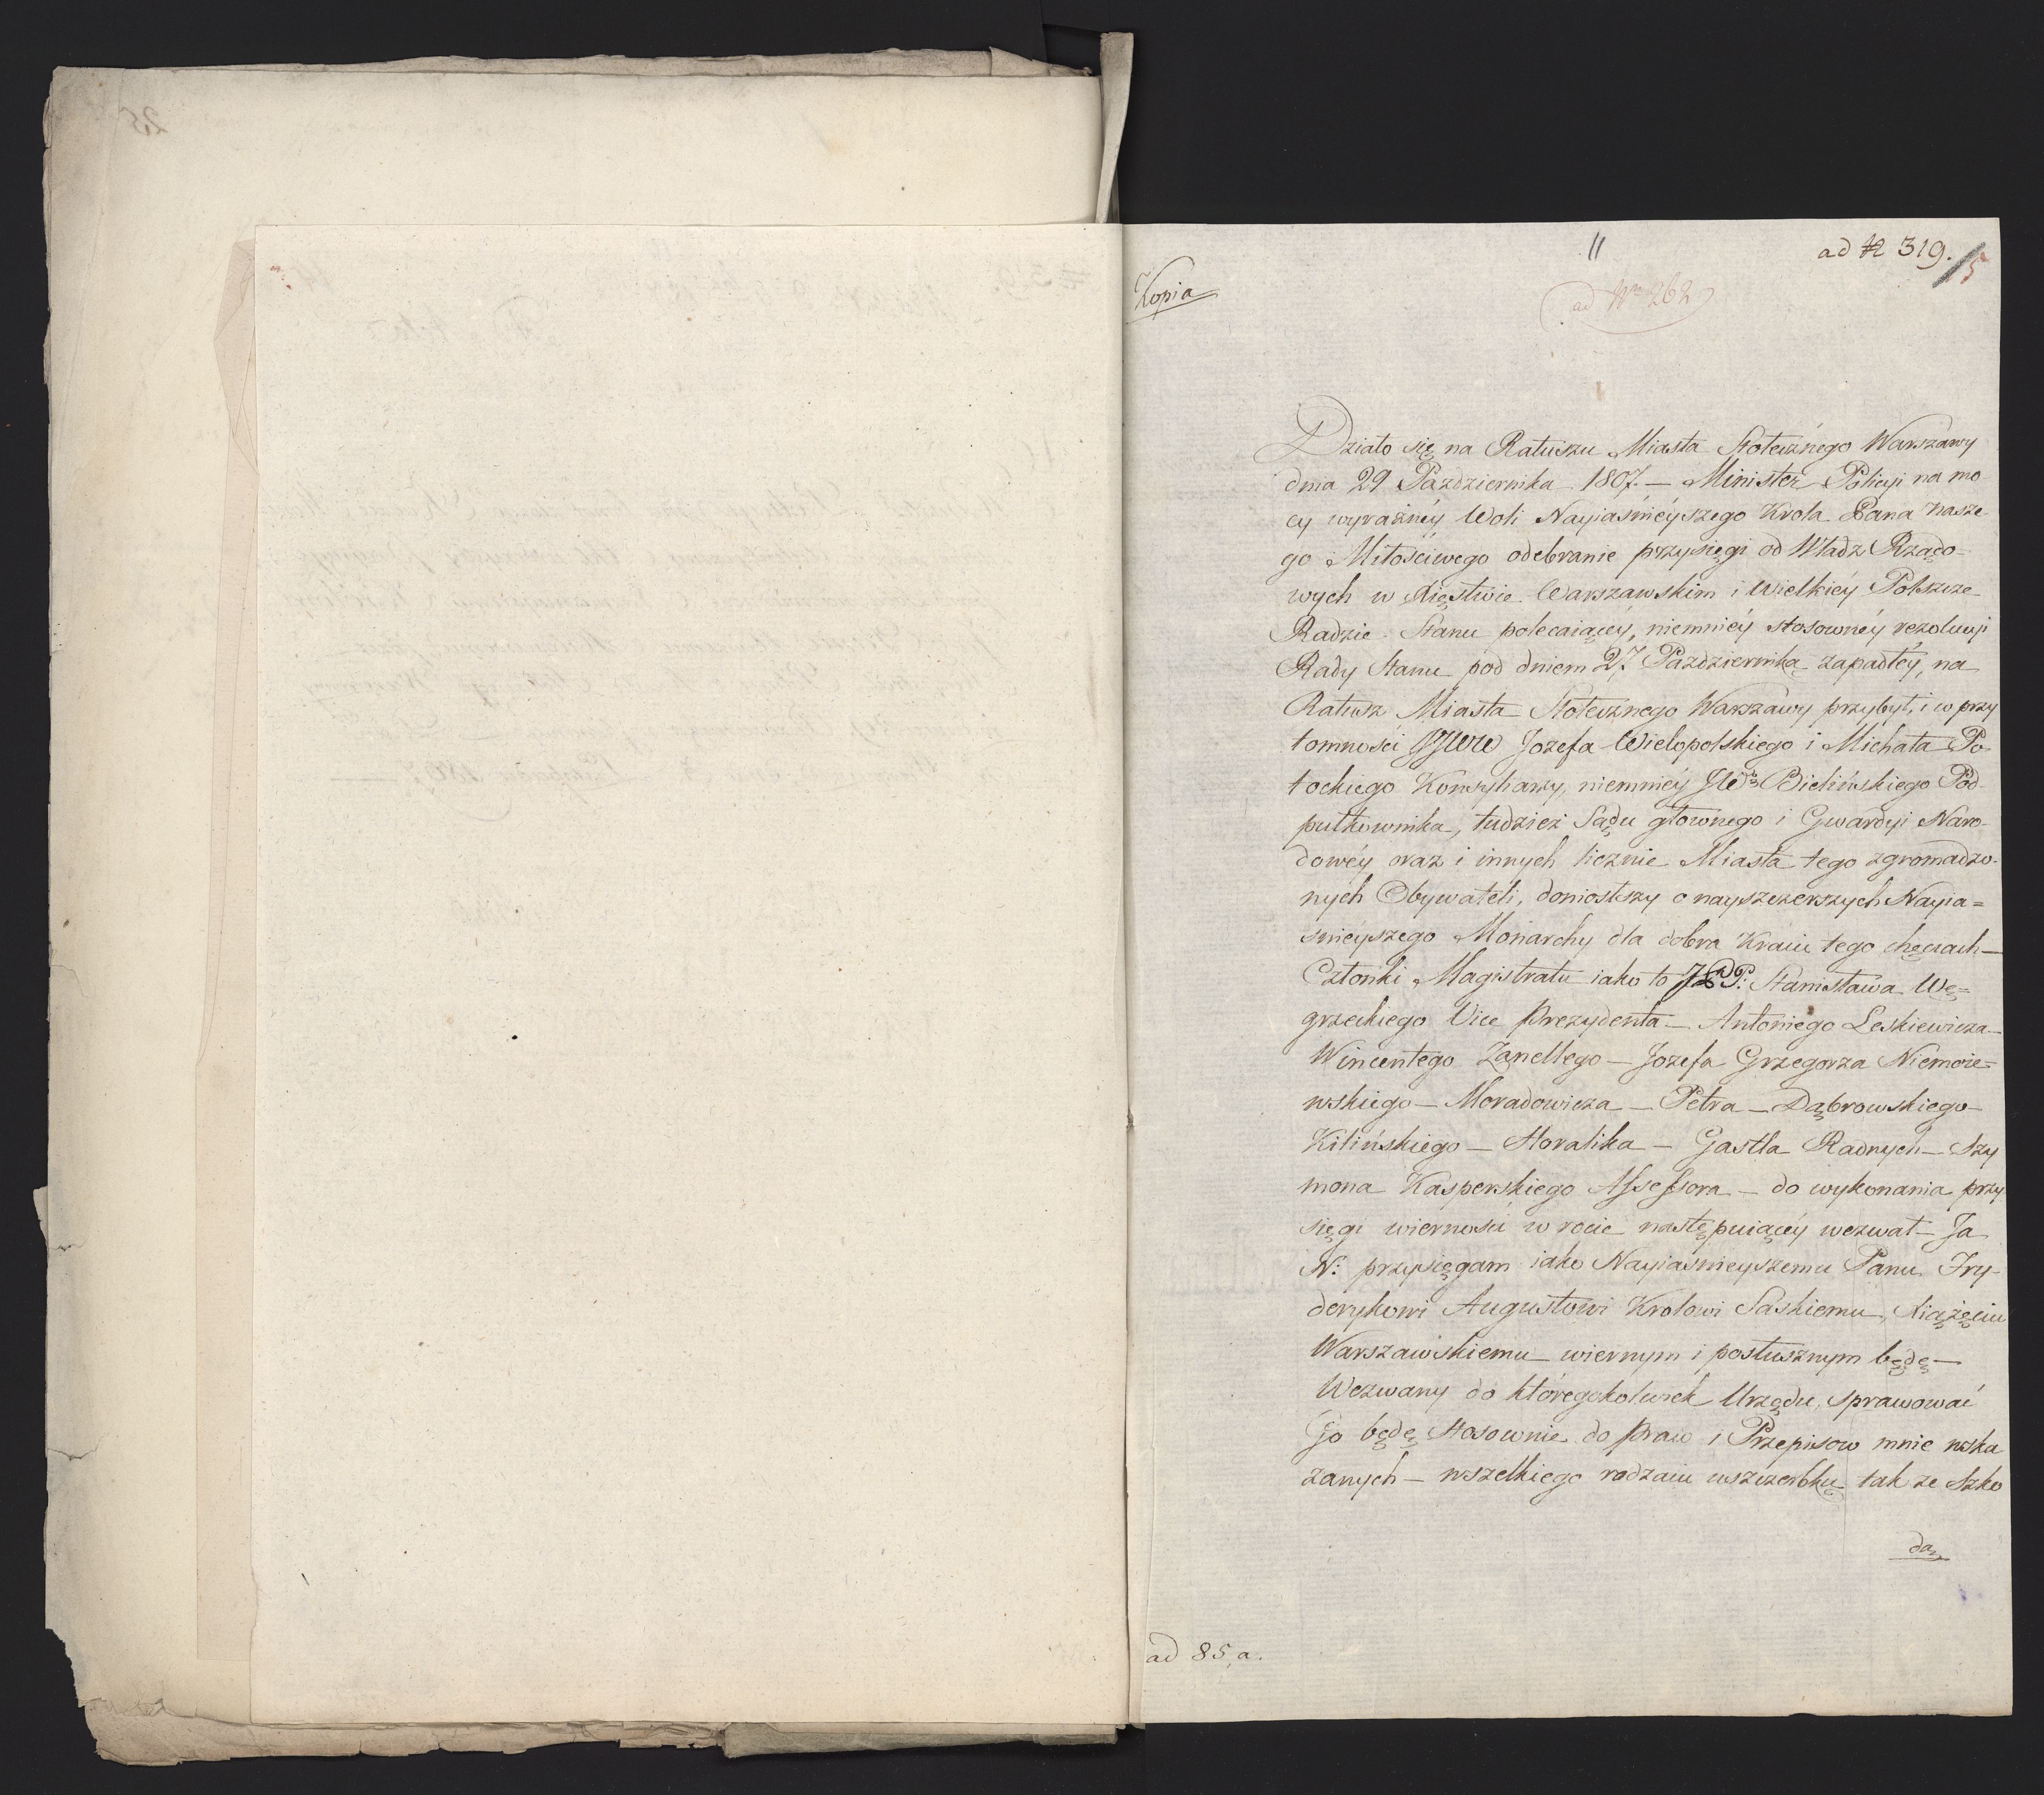 11
ad N 319.
15
Kopia
ad Nro 262
Działo się na Ratuszu Miasta Stołecznego Warszawy
dnia 29 Pazdziernika 1807. — Minister Policyi na mo
cy wyraźnéy Woli Nayiaśnieyszego Krola Pana Nasze
go Miłościwego odebranie przysięgi od Władz Rządo-
wych w Xięstwie Warszawskim i Wielkiéy Polszcze
Radzie Stanu polecaiącéy, niemniéy stosownéy rezolucyi
Rady Stanu pod dniem 27 Pazdziernika zapadłéy, na
Ratusz Miasta Stołecznego Warszawy przybył, i w przy
tomności JJWW Jozefa Wielopolskiego i Michała Po
tockiego Konsyliarzy, niemniéy JW Bielińskiego Pod-
pułkownika, tudzież Sądu głownego i Gwardyi Naro-
dowéy oraz i innych licznie Miasta tego zgromadzo-
nych Obywateli, doniosłszy o nayszczerszych Nayia=
snieyszego Monarchy dla dobra Kraiu tego chęciach —
Członki Magistratu iako to JPP: Stanisława Wę=
grzeckiego Vice Prezydenta — Antoniego Leskiewicza —
Wincentego Zanellego — Jozefa Grzegorza Niemoie=
wskiego — Moradowicza — Petra — Dąbrowskiego —
Kilińskiego — Horalika — Gastla Radnych — Szy
mona Kasperskiego Assessora — do wykonania przy
sięgi wierności w rocie następuiącéy wezwał — Ja
N: przysięgam iako Nayiasnieyszemu Panu Fry-
derykowi Augustowi Krolowi Saskiemu, Xiążęciu
Warszawskiemu wiernym i posłusznym będę —
Wezwany do któregokolwiek Urzędu, sprawować
Go będę stosownie do praw i Przepisow mnie wska
zanych — wszelkiego rodzaiu uszczerbku tak ze Szko
da,
ad 85, a.